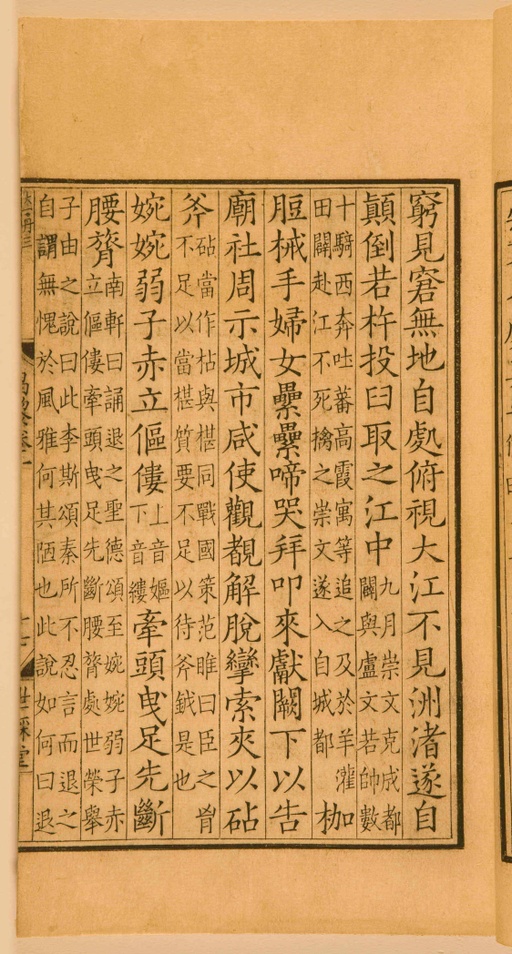 窮見窘無地自處俯視大江不見洲渚遂自
顛倒若杵投臼取之江中九月崇文克成都
闢與盧文若帥數
十騎西奔吐蕃高霞寓等追之及於羊灌
田闢赴江不死擒之崇文遂入自城都枷
脰械手婦女纍纍啼哭拜叩來獻闕下以告
廟社周示城市咸使觀覩解脫攣索夾以砧
斧砧當作枯與椹同戰國策范睢曰臣之胷
不足以當椹質要不足以待斧鉞是也
婉婉弱子赤立傴僂上音嫗
下音縷牽頭曳足先斷
腰膂南軒曰誦退之聖德頌至婉婉弱子赤
立傴僂牽頭曳足先斷腰膂處世榮舉
子由之說曰此李斯頌秦所不忍言而退之
自謂無愧於風雅何其陋也此說如何曰退